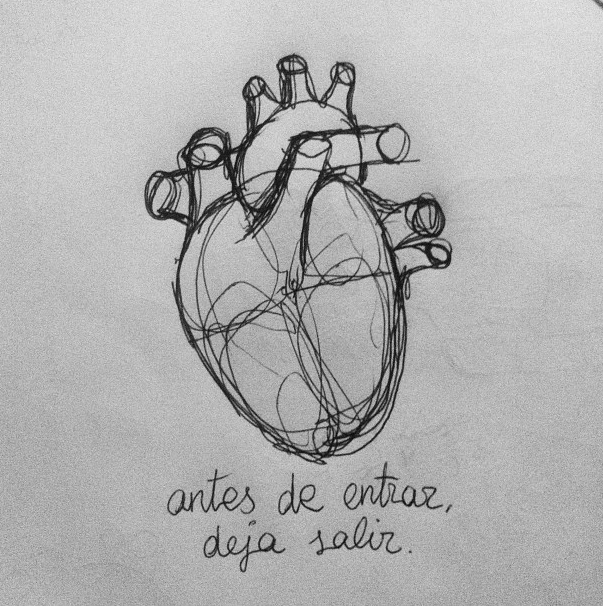 antes de entrar,
deja salir.